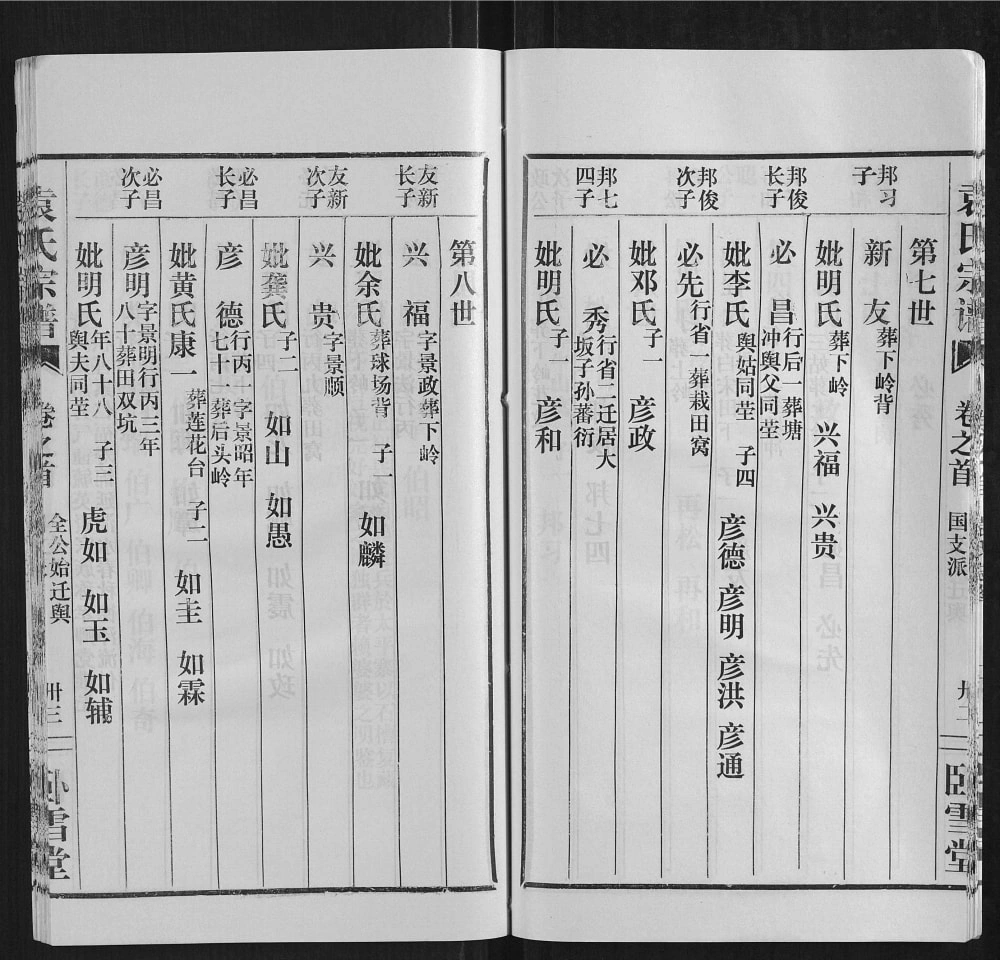 袁氏宗谱 卷之首 国支派 卅二 卧雪堂
第七世
邦习子 新友 葬下岭背
妣明氏 葬下岭 子二 兴福 兴贵
邦俊长子 必昌 行后一葬塘冲舆父同茔
妣李氏 舆姑同茔 子四 彦德 彦明 彦洪 彦通
邦俊次子 必先 行省一葬栽田窝
妣邓氏 子一 彦政
邦七四子 必秀 行省二迁居大坂子孙蕃衍
妣明氏 子一 彦和
第八世
友新长子 兴福 字景政葬下岭
妣余氏 葬球场背 子一 如麟
友新次子 兴贵 字景顺
妣龚氏 子二 如山 如愚
必昌长子 彦德 行丙十字景昭年七十十一葬后头岭
妣黄氏康一 葬莲花台 子二 如圭 如霖
必昌次子 彦明 字景明行丙二年八十葬田双坑
妣明氏 年八十八舆夫同茔 子三 虎如 如玉 如辅
袁氏宗谱 卷之首 全公始迁舆 卅三 卧雪堂